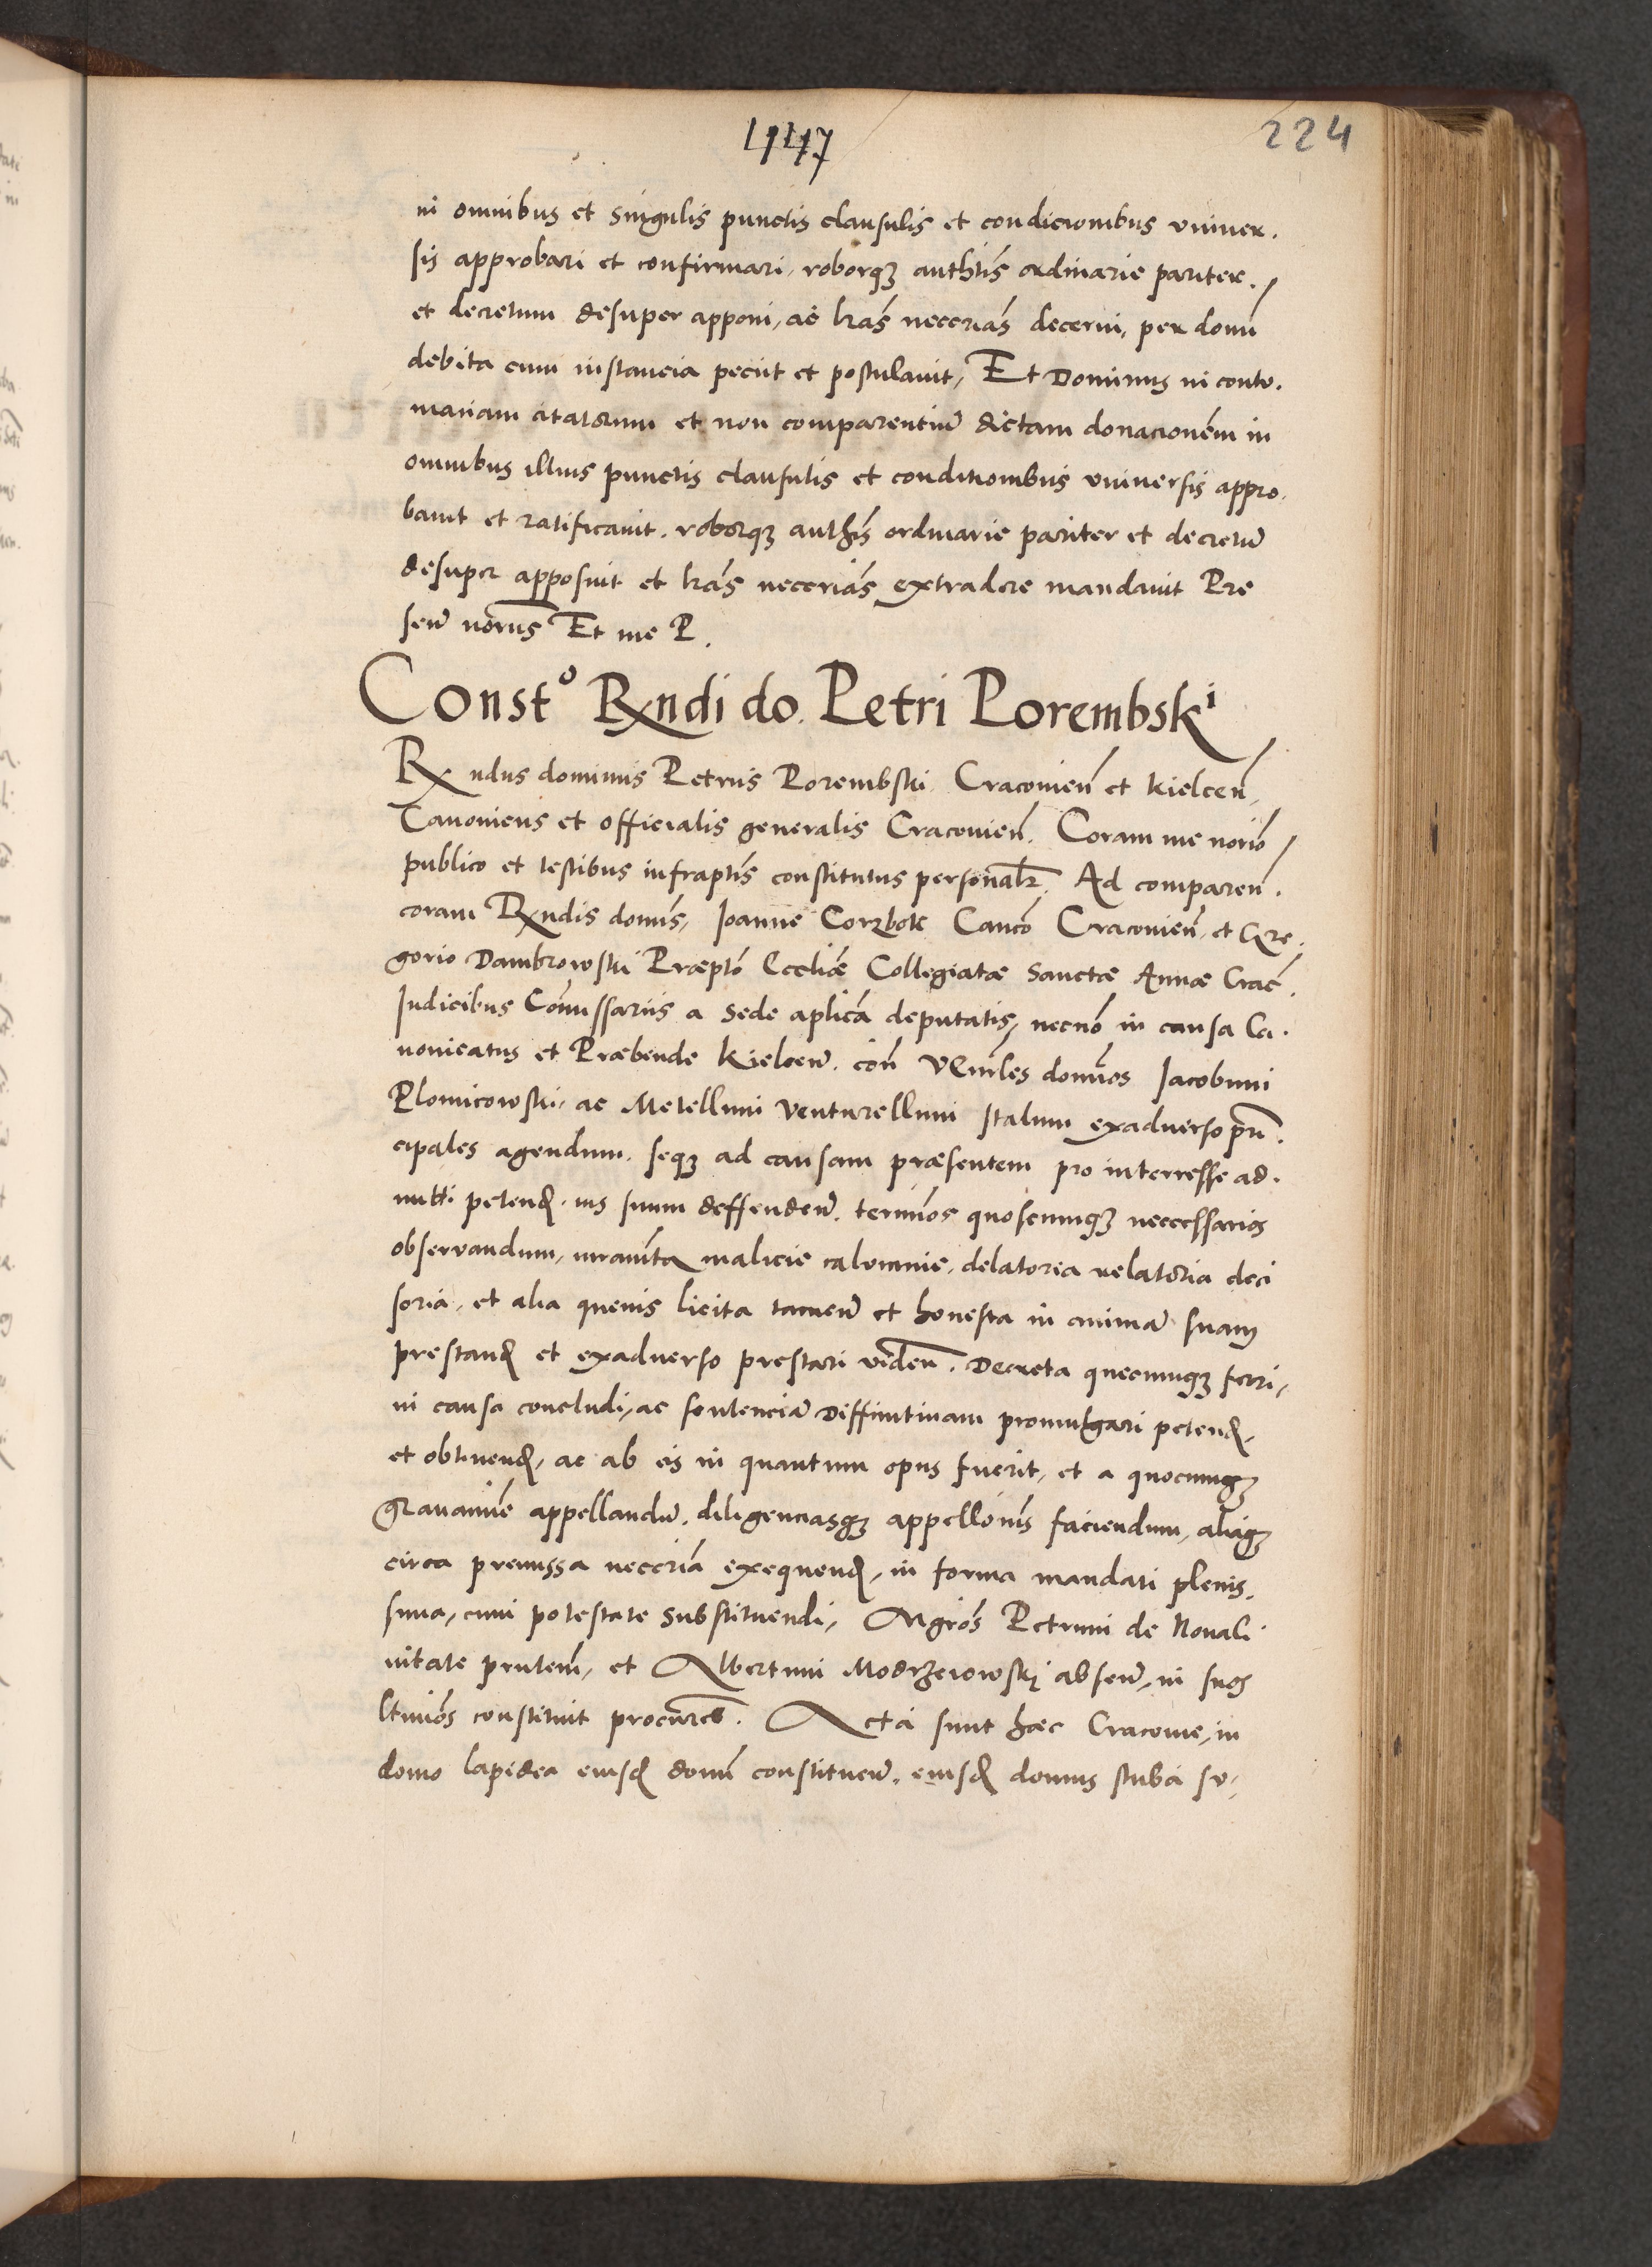 447
224
in omnibus et singulis punctis clausulis et condicionibus vniuer.
sis approbari et confirmari, roborq3 authtis ordinarie pariter.
et decretum desuper apponi, ac lras necerias decerni, per donu
debita cum instancia peciit et postulauit, Et Dominus in contu.
maciam citatorum et non comparentiu dictam donacionem in
omnibus illius punctis clausulis et conditionibus vniuersis appro.
bauit et ratificauit. roborq3 auths ordinarie pariter et decretu
desuper apposuit et lras necerias extradere mandauit Pre
sen norus Et me P.
Const° Rndi do. Petri Porembski
Rndus dominus Petrus Porembski Cracouien et Kielcen,
Canonicus et officialis generalis Cracouien. Coram me norio
publico et testibus infraptis constitutus personalr. Ad comparen.
coram Rndis domis, Joanne Corzbok Canco Cracouien, et Gre.
gorio Dambrowski Præpto Eccliæ Collegiatæ Sanctæ Annæ Crac.
Judicibus Comissariis a Sede aplica deputatis, necno in causa Ca.
nonicatus et Præbende Kielcen. con Venles domnos Jacobum
Plomicowski, ac Metellum Venturellum Italum exaduerso prin.
cipales agendum. seq3 ad causam præsentem pro interresse ad.
mitti petend. ius suum deffenden. terminos quoscumq3 neccessarios
obseruandum, iurameta malicie calumnie, delatoria relatoria deci
soria, et alia queuis licita tamen et honesta in anima suam
prestand et exaduerso prestari viden. Decreta quecumq3 ferri,
in causa concludi, ac sentencia Diffinitiuam promulgari petend,
et obtinend, ac ab eis in quantum opus fuerit, et a quocumq3
grauamine appellandu. diligenciasq3 appellonis faciendum, aliaq3
circa premissa necceria exequend, in forma mandati plenis.
sima, cum potestate substituendi, Mgros Petrum de Nouali
uitate pntem, et Albertum Modrzeiowski absen, in suos
ltimos constituit procures. Acta sunt hæc Cracouie, in
domo lapidea eiusd domi constituen. eiusd domus stuba su,